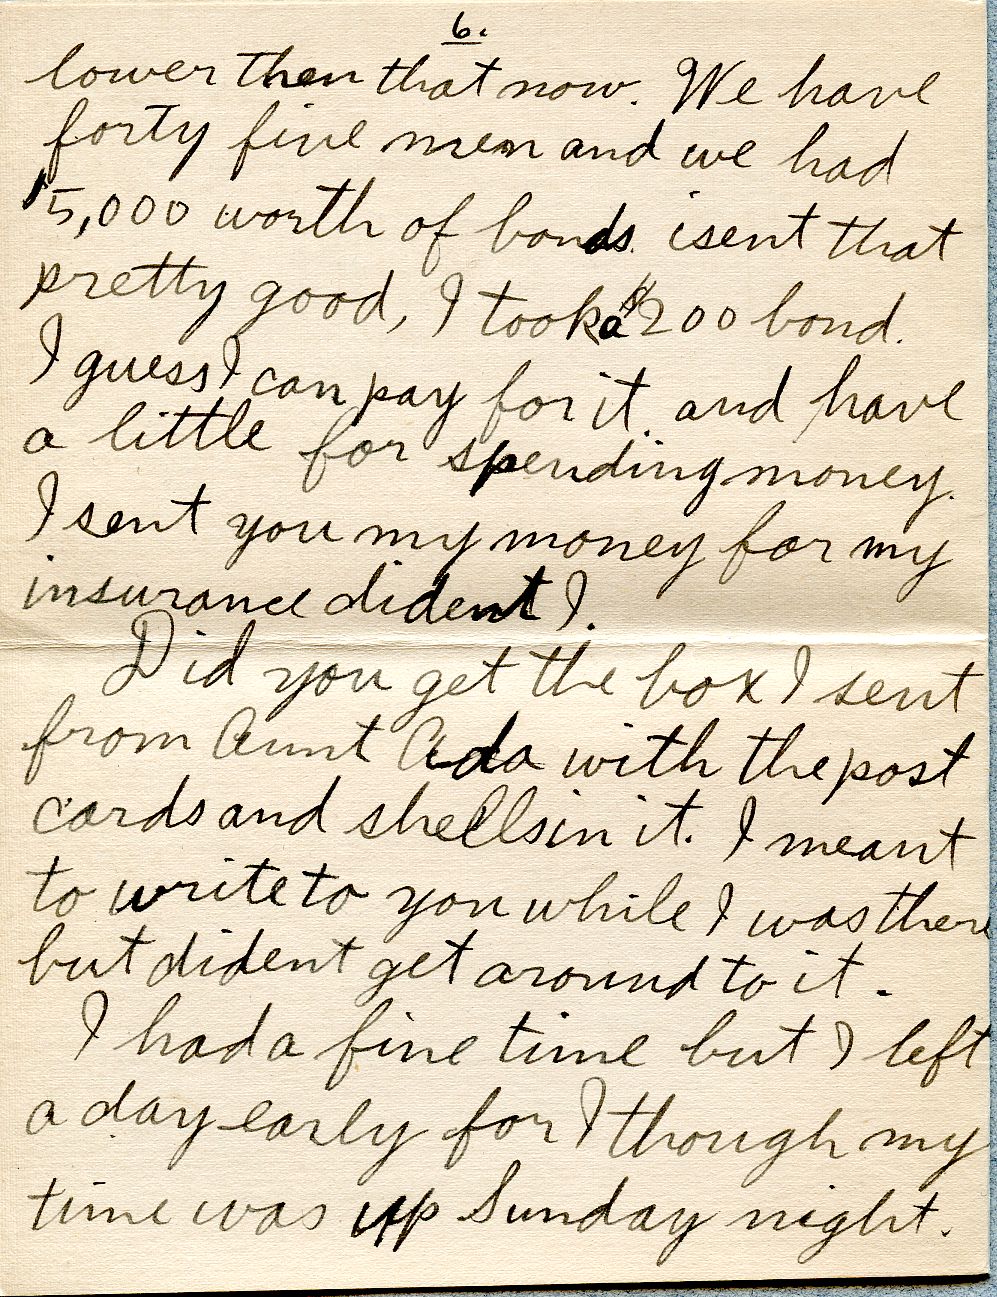 6.
lower then that now. We have
forty five men and we had
$5,000 worth of bonds. isent that
pretty good, I took a $200 bond.
I guess I can pay for it and have
a little for spending money.
I sent you my money for my
insurance dident I.
Did you get the box I sent
from Aunt Ada with the post
cards and shells in it. I meant
to write to you while I was there
but dident get around to it.
I had a fine time but I left
a day early for I though my
time was up Sunday night.